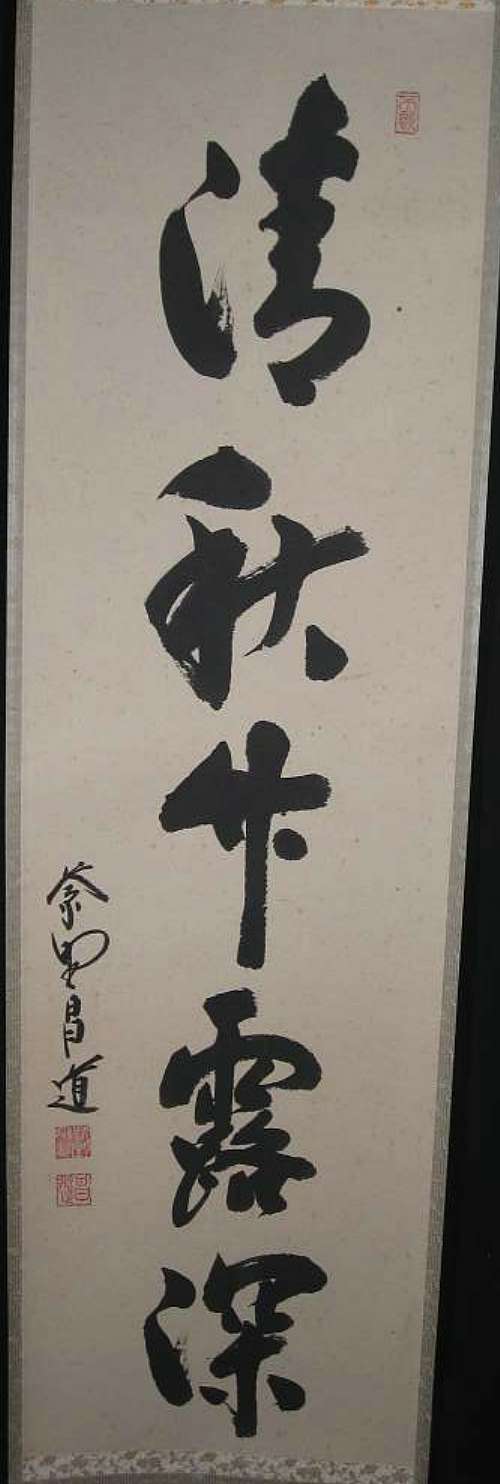 清秋竹露深
紫野昌道